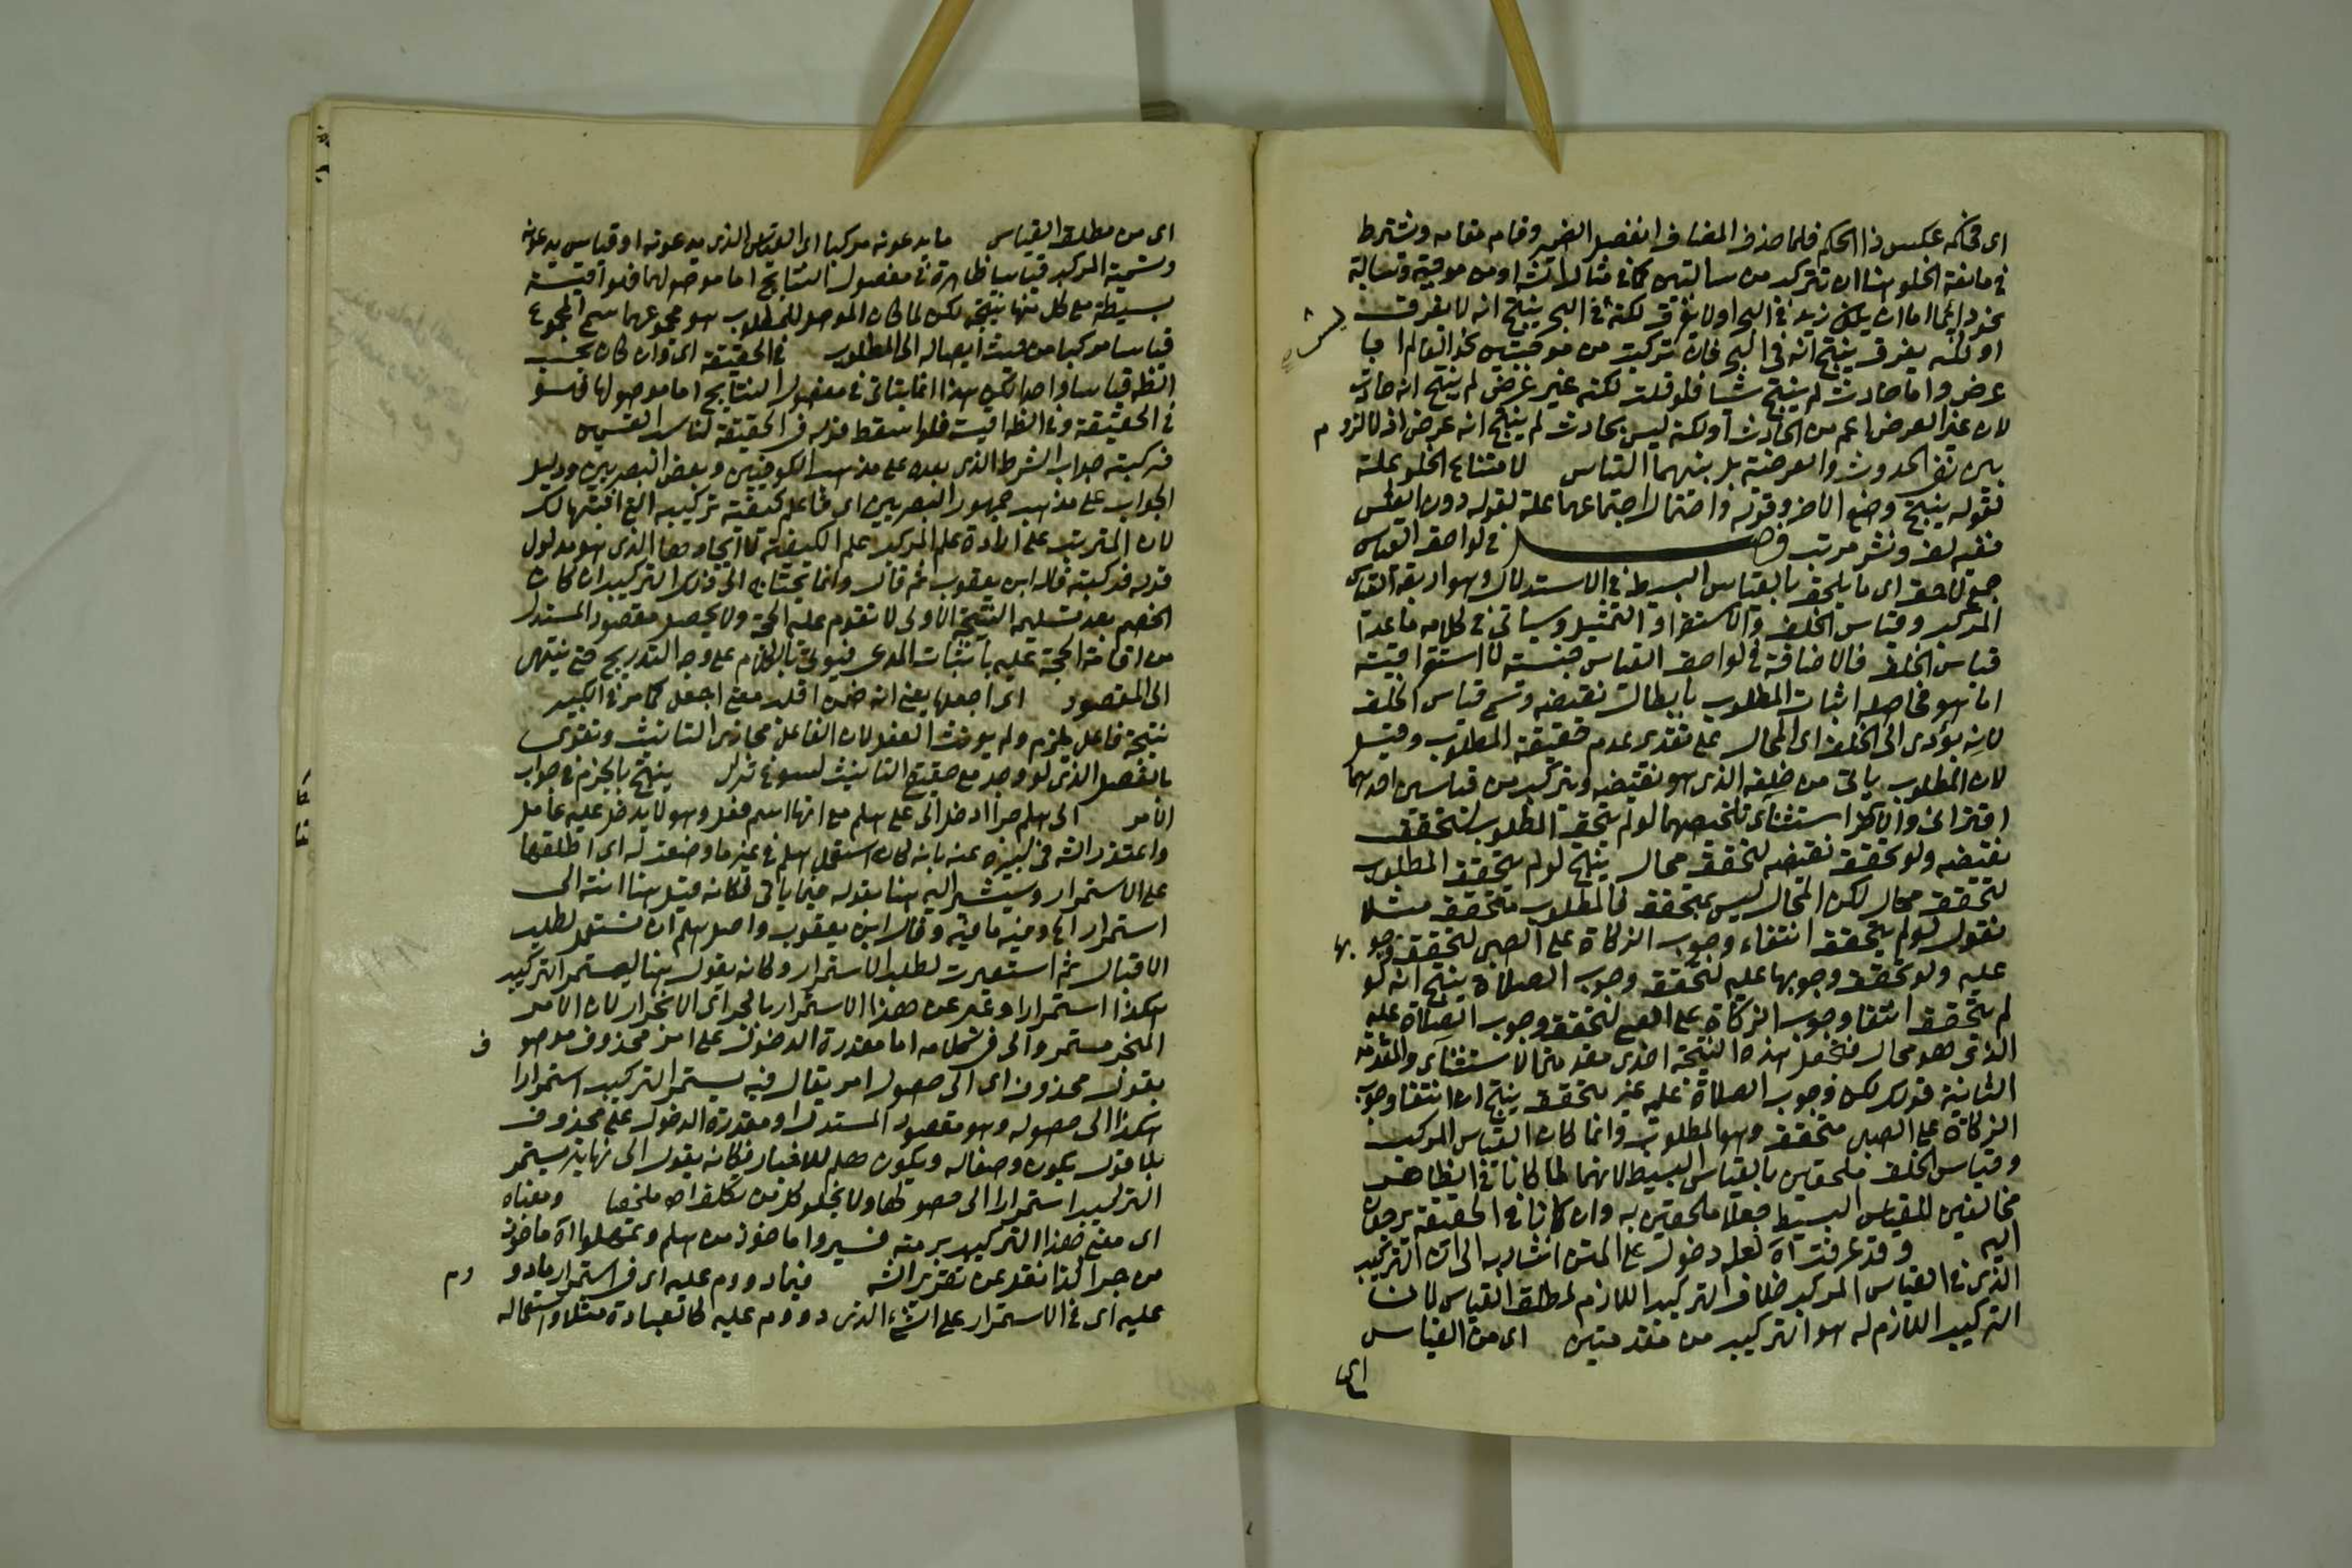 اى فحكمه عكس ذا الحكم فلما حذف المضاف انفصل الضمير وقام مقامه ويشترط
فى مانعة الخلو هنا ان تتركب من سالبتين كما فى مثال الش او من موجبة وسالبة
نحو دائما اما ان يكون زيد فى البحر او لا يغرق لكنه فى البحر ينتج انه لا يغرق
او لكنه يغرق ينتج انه فى البحر فان تركبت من موجبتين نحو العالم اما
عرض واما حادث لم ينتج شيا فلو قلت لكنه غير عرض لم ينتج انه حادث
لان غير العرض اعم من الحادث او لكنه ليس بحادث لم ينتج انه عرض اذ لا لزوم
بين نفى الحدوث والعرضية بل بينهما التباين لامتناع الخلو علة
لقوله ينتج وضع الاخر وقوله واحتمال اجتماعهما علة لقوله دون العكس
ففيه لف ونشر مرتب فصل فى لواحق القياس
جمع لاحق اى ما يلحق بالقياس البسيط فى الاستدلال وهو اربعة القياس
المركب وقياس الخلف والاستقراء والتمثيل وسياتى فى كلامه ما عدا
قياس الخلف فالاضافة فى لواحق القياس جنسية لا استغراقية
اما هو فحاصله اثبات المطلوب بابطال نقيضه وسمى قياس الخلف
لانه يؤدى الى الخلف اى المحال على تقدير عدم حقيقة المطلوب وقيل
لان المطلوب ياتى من خلفه الذى هو نقيضه ويتركب من قياسين احدهما
اقترانى والاخر استثنائى تلخيصهما لو لم يتحقق المطلوب لتحقق
نقيضه ولو تحقق نقيضه لتحقق محال ينتج لو لم يتحقق المطلوب
لتحقق محال لكن المحال ليس بمتحقق فالمطلوب متحقق مثلا
نقول لو لم يتحقق انتفاء وجوب الزكاة على الصبى لتحقق وجوبها
عليه ولو تحقق وجوبها عليه لتحقق وجوب الصلاة ينتج انه لو
لم يتحقق انتفا وجوب الزكاة على الصبى لتحقق وجوب الصلاة عليه
الذى هو محال فنجعل هذه النتيجة احدى مقدمتى الاستثنائى والمقدمة
الثانية قولك لكن وجوب الصلاة عليه غير متحقق ينتج ان انتفا وجوب
الزكاة على الصبى متحقق وهو المطلوب وانما كان القياس المركب
وقياس الخلف ملحقين بالقياس البسيط لانهما لما كانا فى الظاهر
مخالفين للقياس البسيط جعلا ملحقين به وان كانا فى الحقيقة يرجعان
اليه وقد عرفت اه لعله دخول على المتن اشار به الى ان التركيب
الذى فى القياس المركب خلاف التركيب اللازم لمطلق القياس لان
التركيب اللازم له هو التركيب من مقدمتين اى من القياس
اى
اى من مطلق القياس ما يدعونه مركبا اى القياس الذى يدعونه او قياس يدعونه
وتسمية المركب قياسا ظاهرة فى مفصول النتايج اما موصولها فهو اقيسة
بسيطة مع كل منها نتيجته لكن لما كان الموصل للمطلوب هو مجموعهما سمى المجموع
قياسا مركبا من حيث ايصاله الى المطلوب فى الحقيقة اى وان كان بحسب
الظ قياسا واحدا لكن هذا انما يتاتى فى مفصول النتايج اما موصولها فهو
فى الحقيقة وفى الظ اقيسة فلو اسقط قوله فى الحقيقة لناسب القسمين
فركبنه جواب الشرط الذى بعده على مذهب الكوفيين وبعض البصريين ودليل
الجواب على مذهب جمهور البصريين اى فاعلم كيفية تركيبه
لان المترتب على ارادة علم المركب علم الكيفية لا ايجادها الذى هو مدلول
قوله فركبنه قاله ابن يعقوب ثم قال وانما يحتاج الى ذلك التركيب ان كان
الخصم بعد تسليم النتيجة الاولى لا تقوم عليه الحجة ولا يحصل مقصود المستدل
من اقامة الحجة عليه باثبات المدعى فيوتى بالكلام على وجه التدريج حتى ينتهى
الى المقصود اى اجعلها يعنى انه ضمن اقلب معنى اجعل كما مر فى الكبير
نتيجة فاعل يلزم ولم يؤنث الفعل لان الفاعل مجازى التانيث ويقوى
بالفصل الذى لو وجد مع حقيقى التانيث لسوغ ترك ينتج بالجزم فى جواب
الامر الى هلم جرا ادخل الى على هلم مع انها اسم فعل وهو لا يدخل عليه عامل
واعتذر الش فى كبيره عنه بانه كان استعمل هلم فى غير ما وضعت له اى اطلقها
على الاستمرار وسيشير اليه هنا بقوله فيما ياتى فكانه قيل هنا انته الى
استمرار اه وفيه ما فيه وقال ابن يعقوب واصل هلم ان تستعمل لطلب
الاقبال ثم استعيرت لطلب الاستمرار وكانه يقول هنا ليستمر التركيب
هكذا استمرارا وعبر عن هذا الاستمرار بالجر اى الانجرار لان الامر
المنجر مستمر والى فى كلامه اما مقدرة الدخول على امر محذوف موصوف
بقول محذوف اى الى حصول امر يقال فيه يستمر التركيب استمرارا
هكذا الى حصوله وهو مقصود المستدل او مقدرة الدخول على محذوف
بلا قول يكون وصفا له ويكون هلم للاخبار فكانه يقول الى نهاية يستمر
التركيب استمرارا الى حصولها ولا يخلو كل من تكلف اه ملخصا ومعناه
اى معنى هذا التركيب برمته فسيروا ماخوذ من هلم وتمهلوا اه ماخوذ
من جرا كذا نقل عن تقرير الش فيما دووم عليه اى فى استمرار ما دووم
عليه اى فى الاستمرار على الشئ الذى دووم عليه كالعبادة مثلا واستعماله